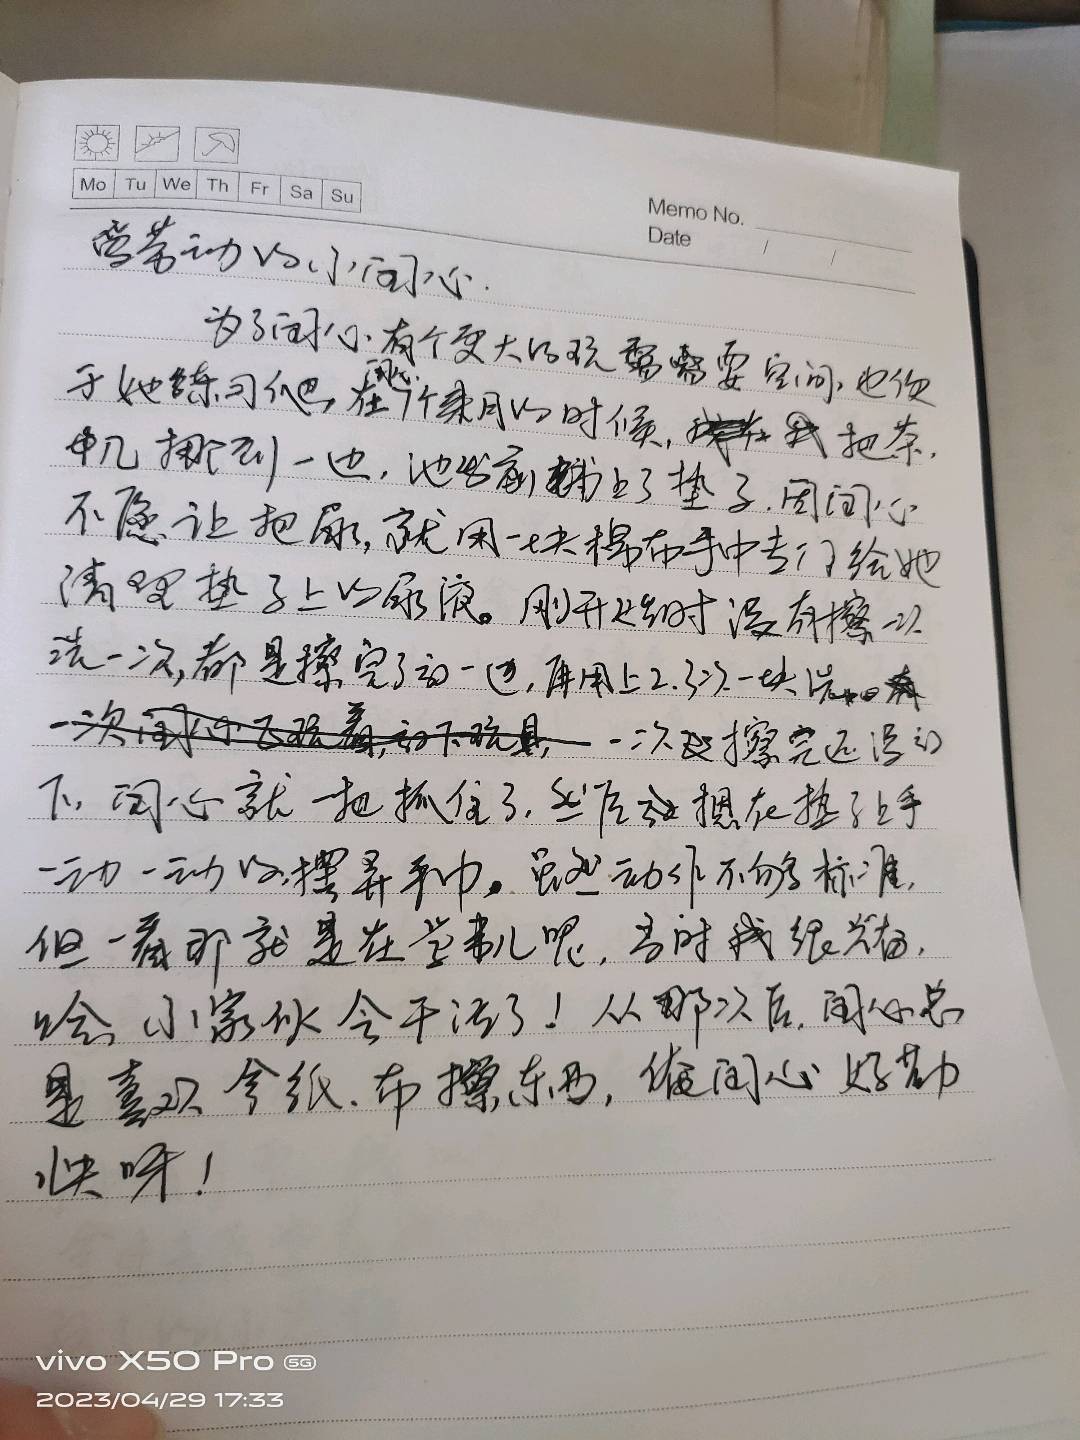 Mo Tu We Th Fr Sa Su
Memo No.
Date / /
爱劳动的小闰心.
为了闰心有个更大的玩需要空间,也便
于她练习爬,在闰心个来月的时候,我把茶
几挪到一边,地当前铺上了垫子.因闰心
不愿让把尿,就用一块棉布手巾专门给她
清理垫子上的尿液。刚开始时没有擦一次
洗一次,都是擦完了放一边,再用上2.3次一块洗。
一次擦完还没放
下,闰心就一把抓住了,然后摁在垫子上手
一动一动的摆弄手巾。虽然动作不够标准,
但一看那就是在尝来儿呢,当时我很兴奋,
哈,小家伙会干活了!从那次后,闰心总
是喜欢拿纸、布擦东西,俺闰心好勤
快呀!
vivo X50 Pro 5G
2023/04/29 17:33